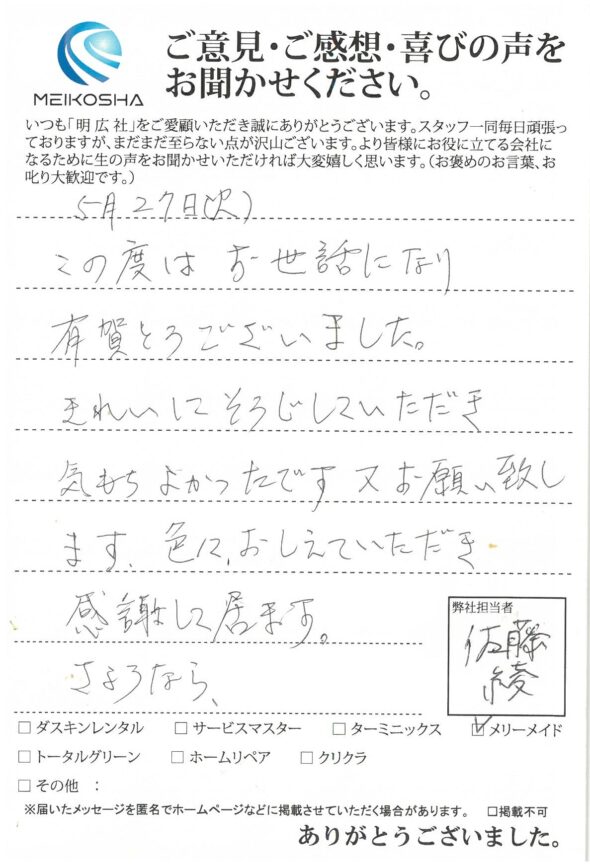 MEIKOSHA
ご意見・ご感想・喜びの声を
お聞かせください。
いつも「明広社」をご愛顧いただき誠にありがとうございます。スタッフ一同毎日頑張っ
ておりますが、まだまだ至らない点が沢山ございます。より皆様にお役に立てる会社に
なるために生の声をお聞かせいただければ大変嬉しく思います。（お褒めのお言葉、お
叱り大歓迎です。）
5月27日(火)
この度は お世話になり
有賀とうございました。
きれいにそうじしていただき
気もちよかったです 又お願い致し
ます、色々、おしえていただき
感謝して居ます。
さようなら、
弊社担当者
佐藤
綾
□ダスキンレンタル □サービスマスター □ターミニックス ☑メリーメイド
□トータルグリーン □ホームリペア □クリクラ
□その他 ：
※届いたメッセージを匿名でホームページなどに掲載させていただく場合があります。 □掲載不可
ありがとうございました。